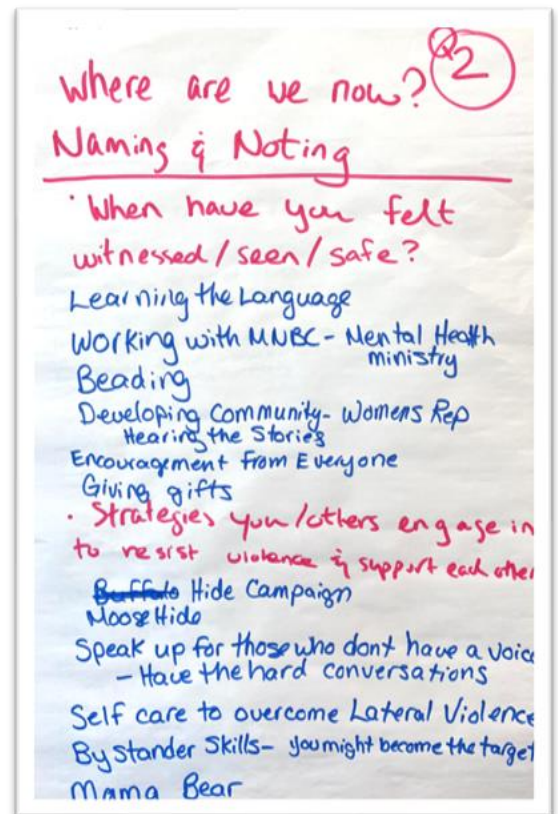 Where are we now? Q2
Naming & Noting
· When have you felt
witnessed/seen/safe?
Learning the Language
Working with MNBC - Mental Health
ministry
Beading
Developing Community - Womens Rep
Hearing the Stories
Encouragement from Everyone
Giving gifts
· Strategies you/others engage in
to resist violence & support each other
Buffalo Hide Campaign
Moose Hide
Speak up for those who dont have a voice
- Have the hard conversations
Self care to overcome Lateral Violence
By Stander Skills - you might become the target
Mama Bear